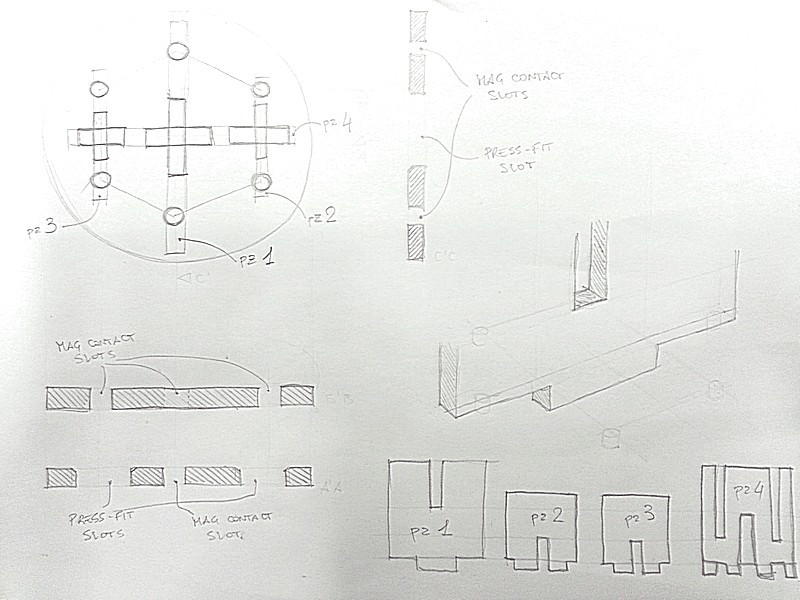 pz 4
pz 3
pz 2
pz 1
C'
MAG CONTACT
SLOTS
PRESS-FIT
SLOT
C'C
MAG CONTACT
SLOTS
B'B
A'A
PRESS-FIT
SLOTS
MAG CONTACT
SLOT
pz 1
pz 2
pz 3
pz 4